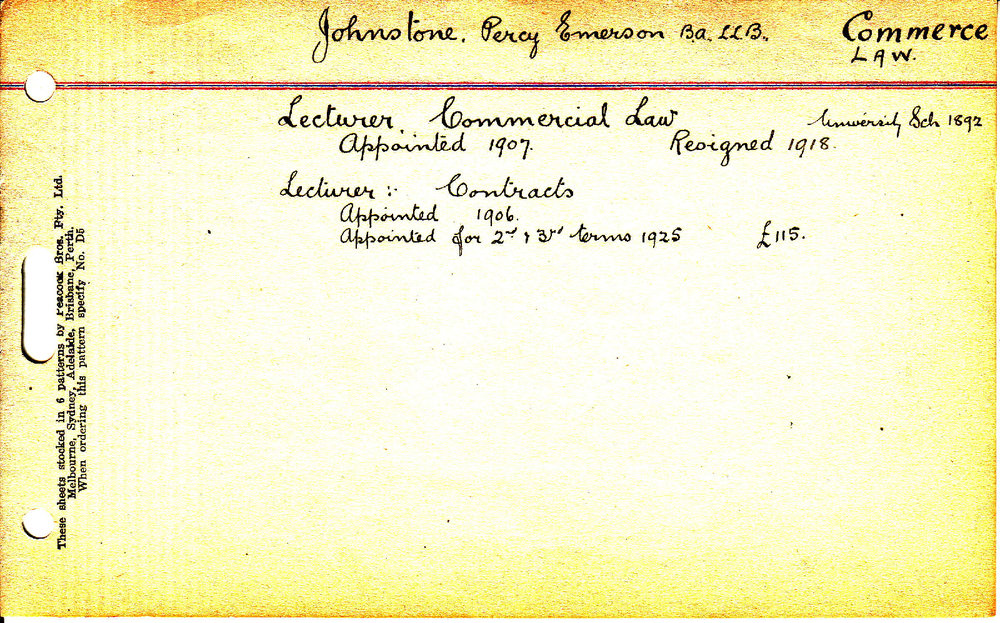 Johnstone. Percy Emerson Ba. LLB. Commerce
LAW.
Lecturer, Commercial Law University Sch 1892
Appointed 1907. Resigned 1918.
Lecturer :- Contracts
Appointed 1906.
Appointed for 2nd & 3rd terms 1925 £115.
These sheets stocked in 6 patterns by Peacock Bros. Pty. Ltd.
Melbourne, Sydney, Adelaide, Brisbane, Perth.
When ordering this pattern specify No. D5